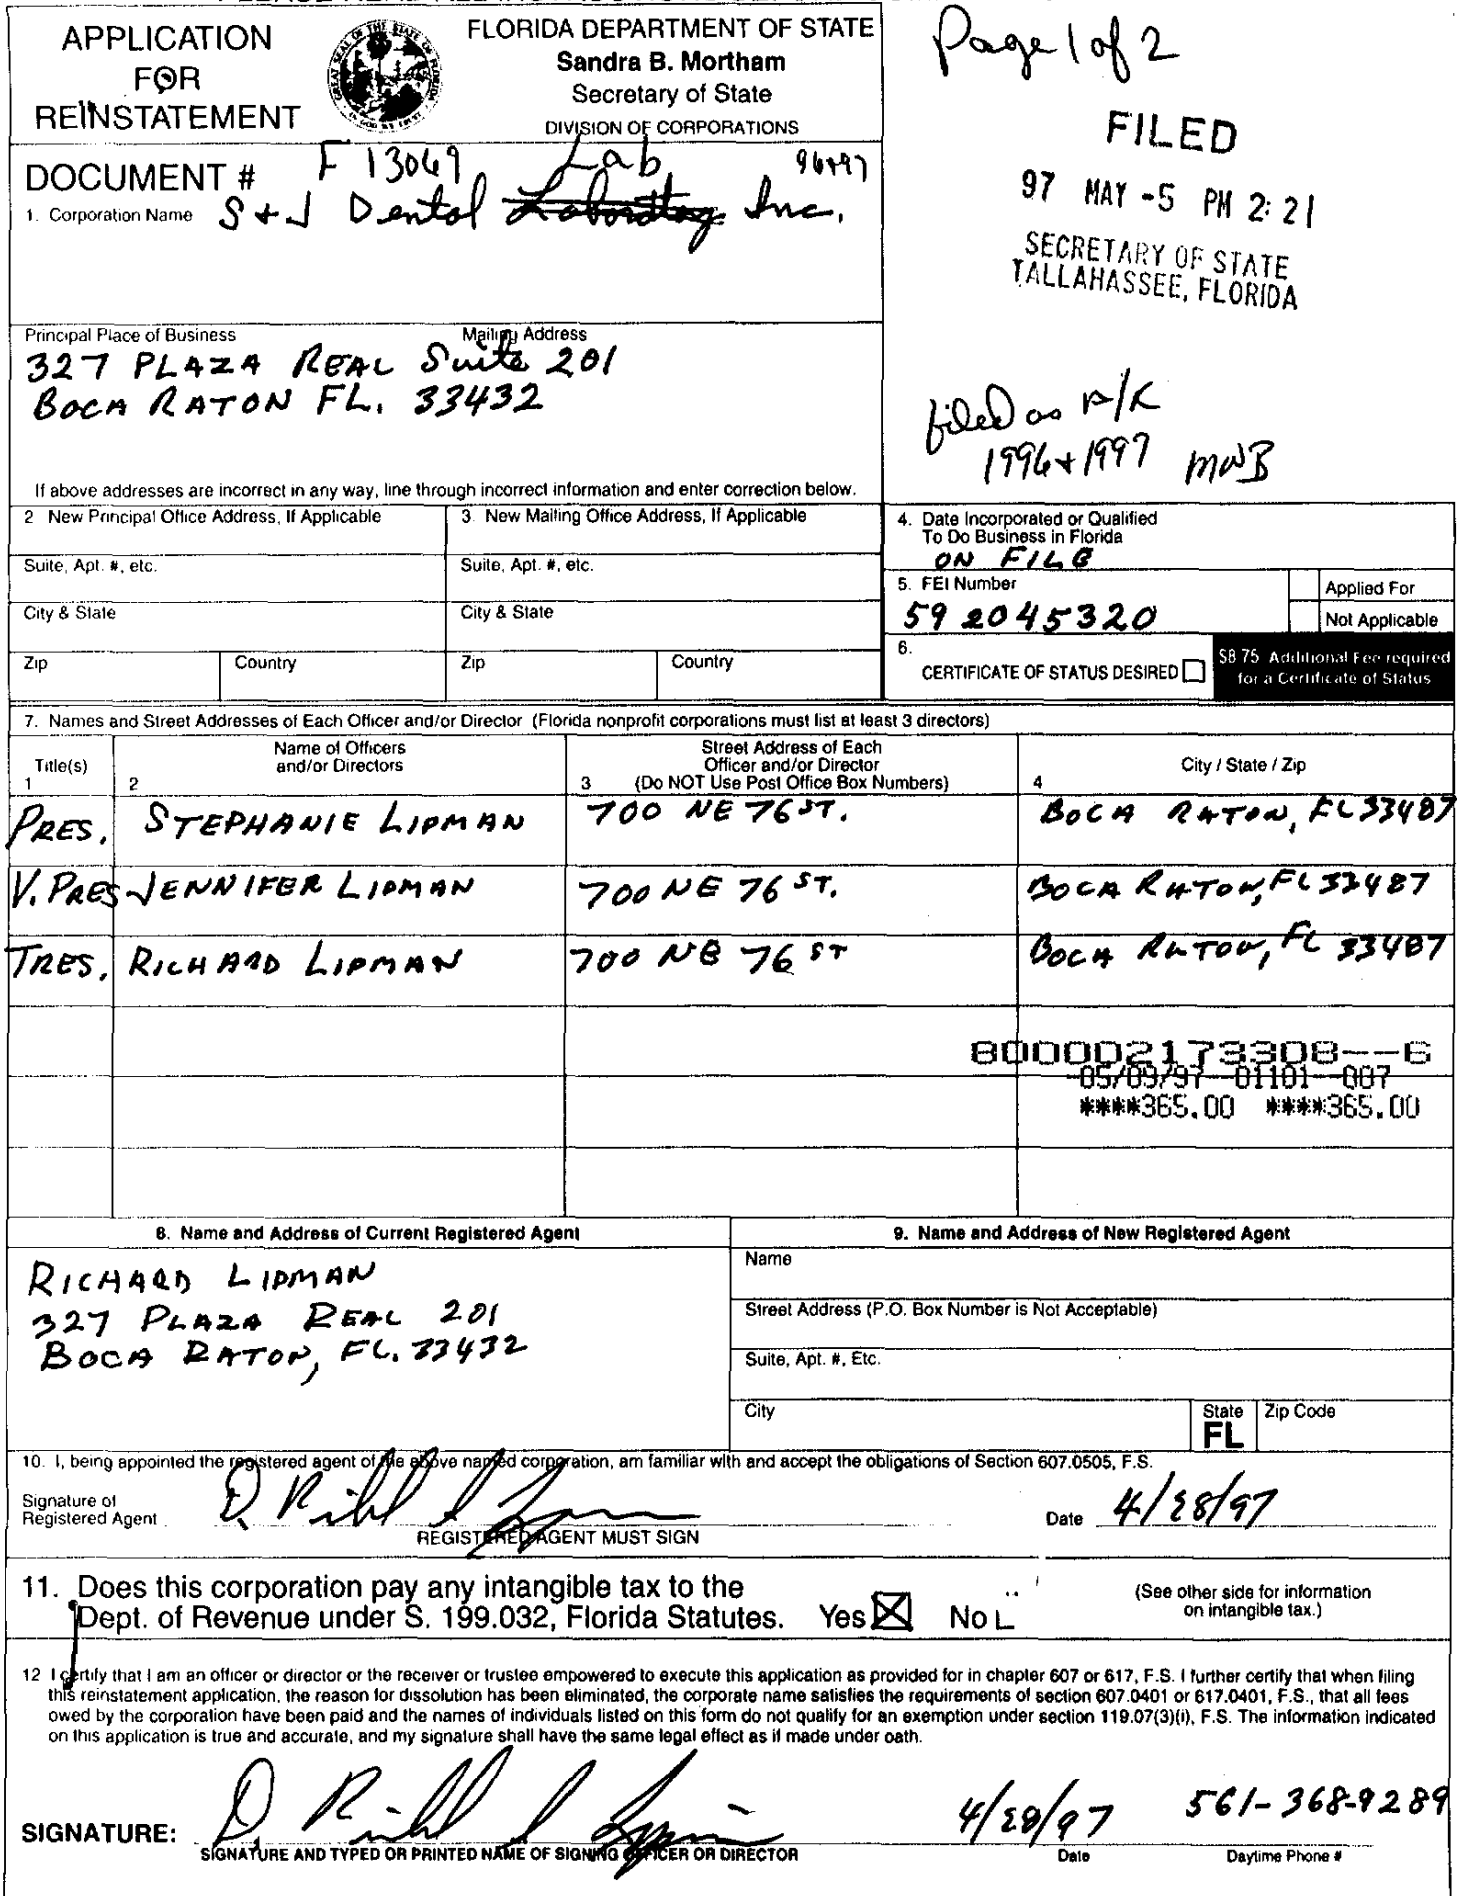 APPLICATION
FOR
REINSTATEMENT
FLORIDA DEPARTMENT OF STATE
Sandra B. Mortham
Secretary of State
DIVISION OF CORPORATIONS
Page 1 of 2
FILED
97 MAY -5 PM 2:21
SECRETARY OF STATE
TALLAHASSEE, FLORIDA
DOCUMENT # F 13069 96+97
Lab
1. Corporation Name S + J Dental Laboratory Inc.
Principal Place of Business Mailing Address
327 PLAZA REAL Suite 201
BOCA RATON FL. 33432
filed as A/R
1996 + 1997 MWB
If above addresses are incorrect in any way, line through incorrect information and enter correction below.
2 New Principal Office Address, If Applicable
3. New Mailing Office Address, If Applicable
Suite, Apt. #, etc.
Suite, Apt. #, etc.
City & State
City & State
Zip Country
Zip Country
4. Date Incorporated or Qualified
To Do Business in Florida
ON FILE
5. FEI Number
59 2045320
Applied For
Not Applicable
6.
CERTIFICATE OF STATUS DESIRED
$8.75 Additional Fee required
for a Certificate of Status
7. Names and Street Addresses of Each Officer and/or Director (Florida nonprofit corporations must list at least 3 directors)
Title(s)
1
Name of Officers
and/or Directors
2
Street Address of Each
Officer and/or Director
3 (Do NOT Use Post Office Box Numbers)
City / State / Zip
4
PRES. STEPHANIE LIPMAN 700 NE 76 ST. BOCA RATON, FL 33487
V. PRES JENNIFER LIPMAN 700 NE 76 ST. BOCA RATON, FL 33487
TRES. RICHARD LIPMAN 700 NE 76 ST BOCA RATON, FL 33487
800002173308--6
-05/09/97--01101--007
****365.00 ****365.00
8. Name and Address of Current Registered Agent
RICHARD LIPMAN
327 PLAZA REAL 201
BOCA RATON, FL. 33432
9. Name and Address of New Registered Agent
Name
Street Address (P.O. Box Number is Not Acceptable)
Suite, Apt. #, Etc.
City
State
FL
Zip Code
10. I, being appointed the registered agent of the above named corporation, am familiar with and accept the obligations of Section 607.0505, F.S.
Signature of
Registered Agent
REGISTERED AGENT MUST SIGN
Date 4/28/97
11. Does this corporation pay any intangible tax to the
Dept. of Revenue under S. 199.032, Florida Statutes. Yes No
(See other side for information
on intangible tax.)
12 I certify that I am an officer or director or the receiver or trustee empowered to execute this application as provided for in chapter 607 or 617, F.S. I further certify that when filing
this reinstatement application, the reason for dissolution has been eliminated, the corporate name satisfies the requirements of section 607.0401 or 617.0401, F.S., that all fees
owed by the corporation have been paid and the names of individuals listed on this form do not qualify for an exemption under section 119.07(3)(i), F.S. The information indicated
on this application is true and accurate, and my signature shall have the same legal effect as if made under oath.
SIGNATURE: 4/28/97 561-368-9289
SIGNATURE AND TYPED OR PRINTED NAME OF SIGNING OFFICER OR DIRECTOR
Date
Daytime Phone #